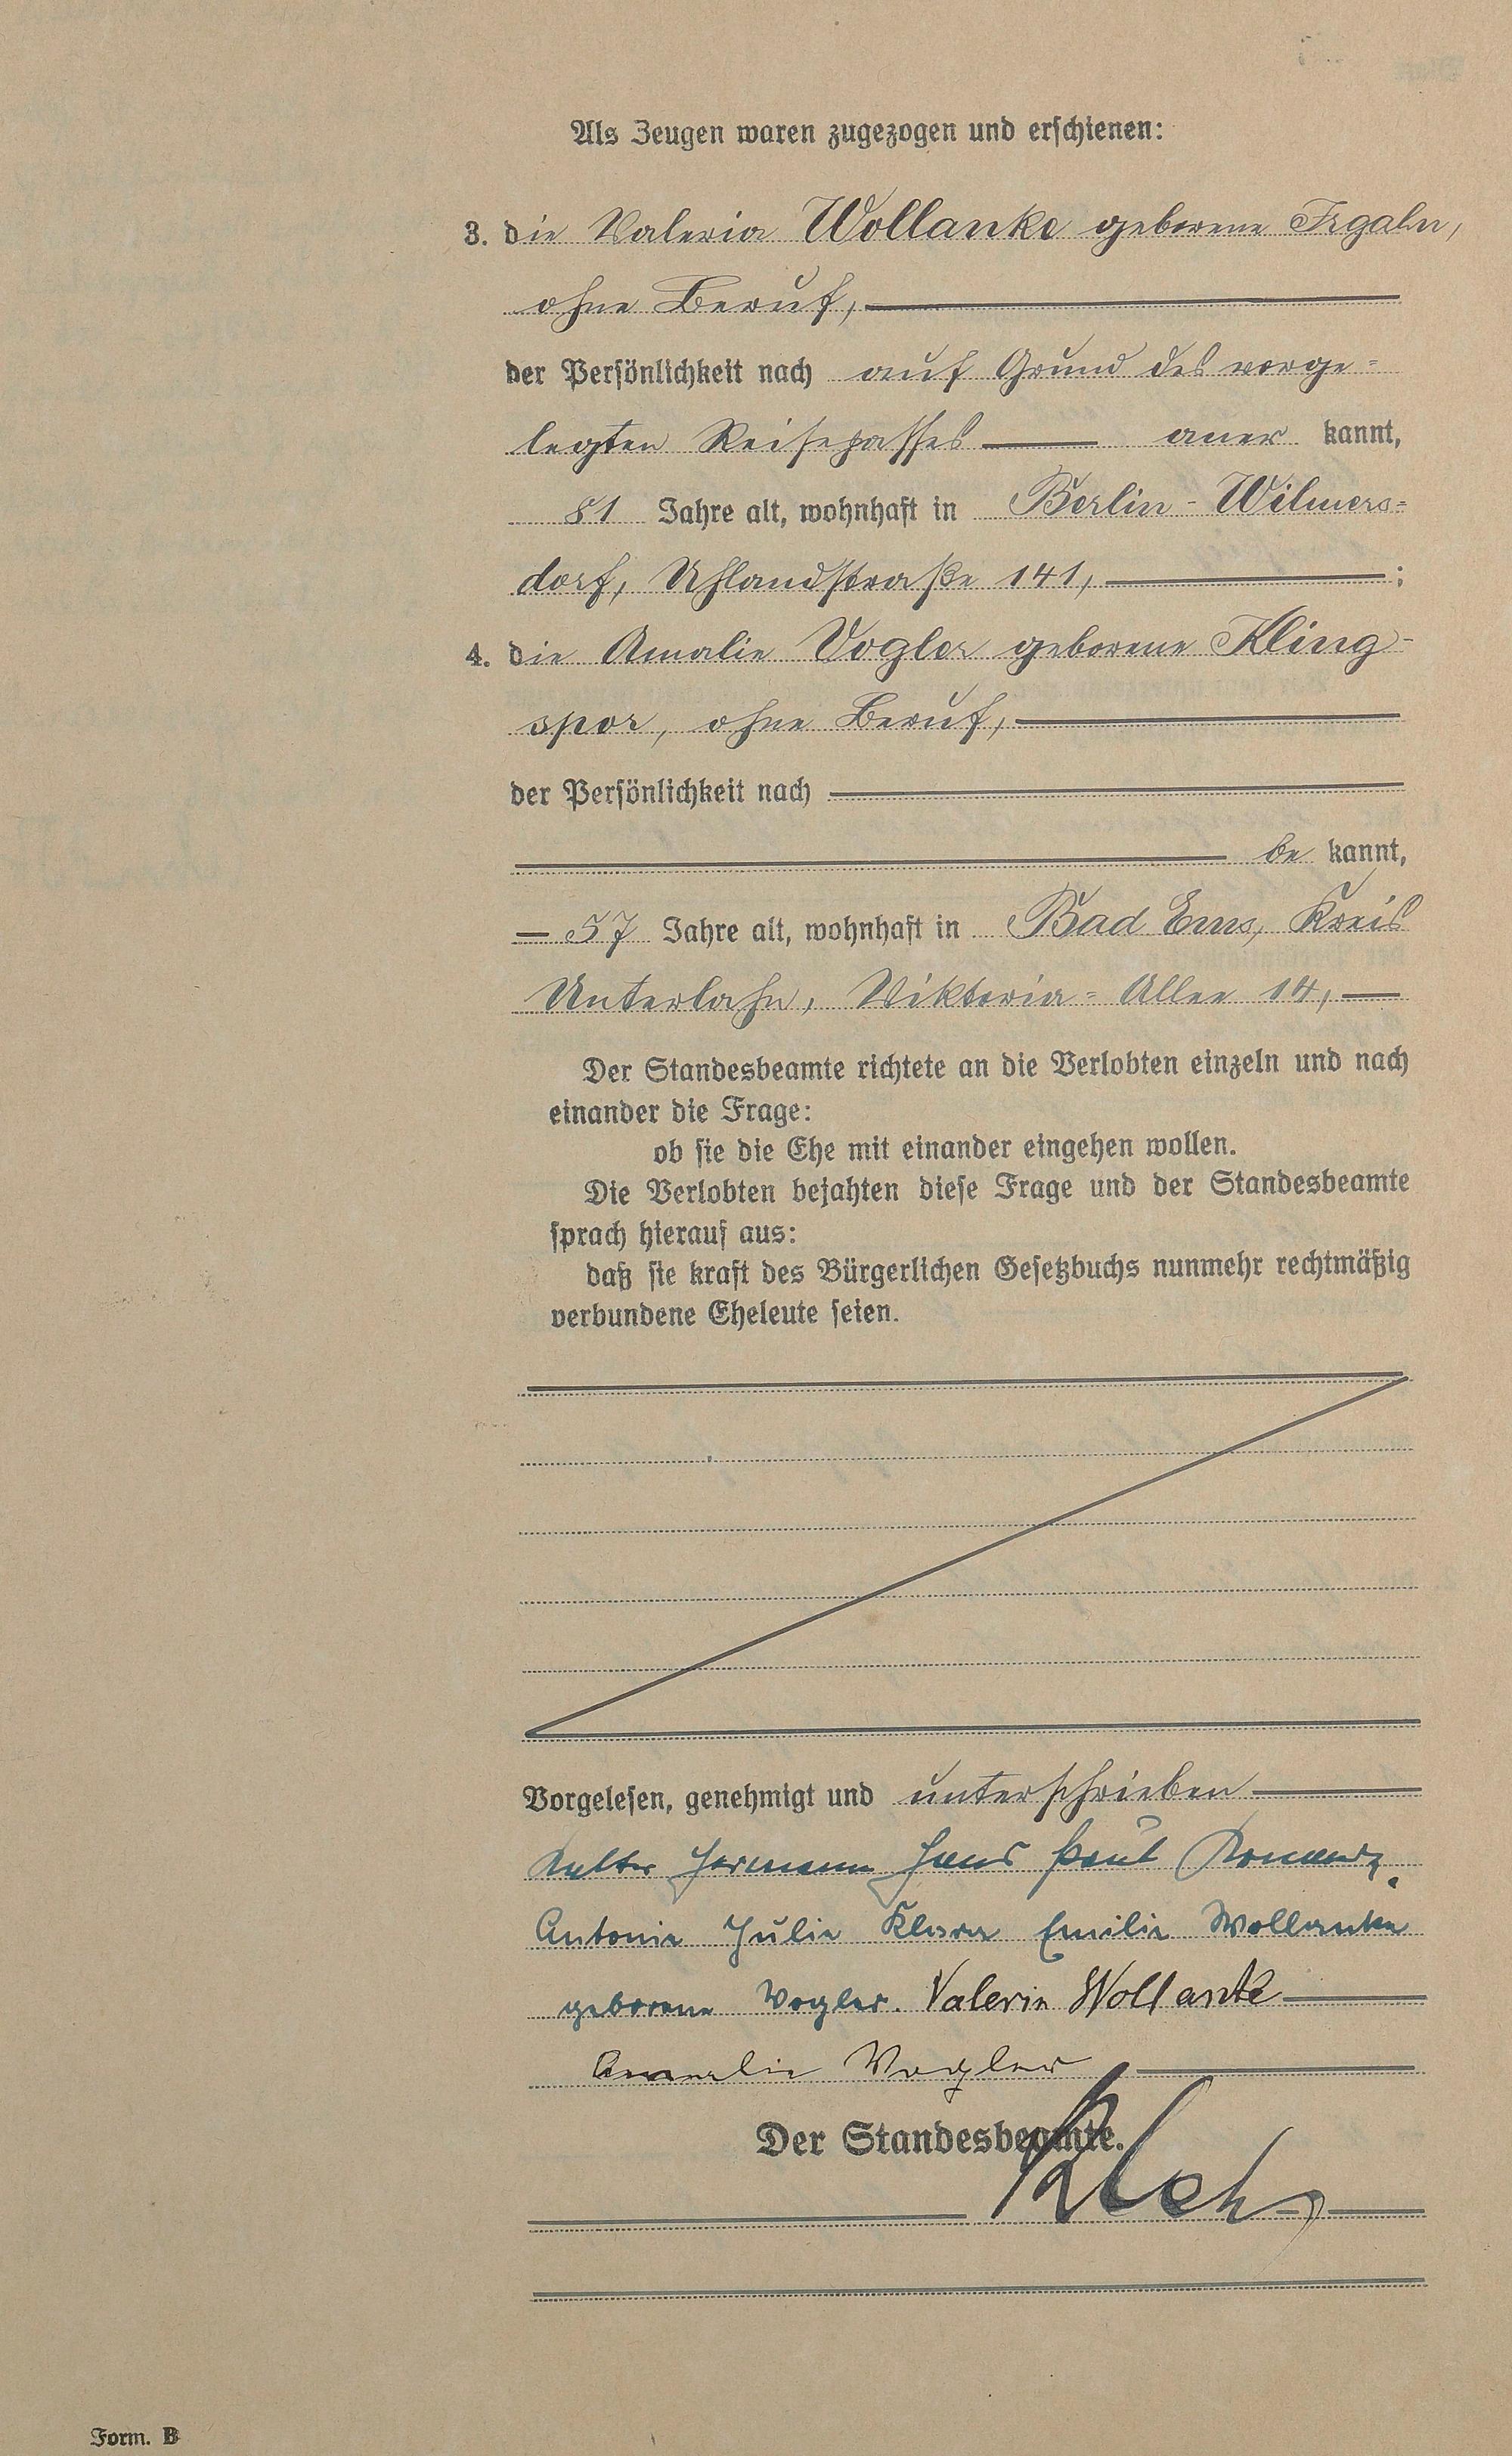 Als Zeugen waren zugezogen und erschienen:
3. die Valeria Wollanke geborene Irgahn,
ohne Beruf,
der Persönlichkeit nach auf Grund des vorge-
legten Reisepasses aner kannt,
81 Jahre alt, wohnhaft in Berlin-Wilmers-
dorf, Uhlandstraße 141, ;
4. die Amalie Vogler geborene Kling-
spor, ohne Beruf,
der Persönlichkeit nach
be kannt,
57 Jahre alt, wohnhaft in Bad Ems, Kreis
Unterlahn, Viktoria-Allee 14,
Der Standesbeamte richtete an die Verlobten einzeln und nach
einander die Frage:
ob sie die Ehe mit einander eingehen wollen.
Die Verlobten bejahten diese Frage und der Standesbeamte
sprach hierauf aus:
daß sie kraft des Bürgerlichen Gesetzbuchs nunmehr rechtmäßig
verbundene Eheleute seien.
Vorgelesen, genehmigt und unterschrieben
Hermann Hans Paul
Antonie Julie Klara Emilie Wollanke
geborene Vogler. Valeria Wollanke
Amalie Vogler
Der Standesbeamte.
Form. B